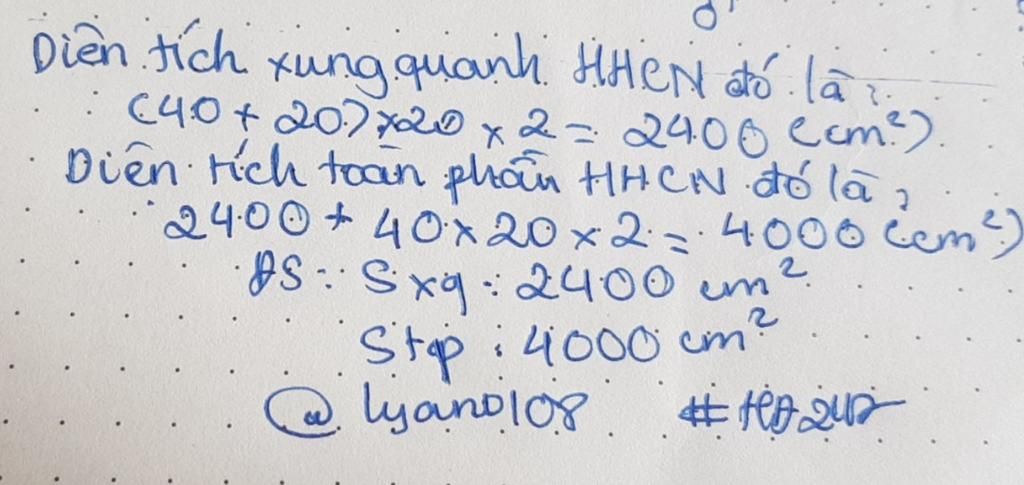 Diện tích xung quanh HHCN đó là:
(40 + 20) x 20 x 2 = 2400 (cm²)
Diện tích toàn phần HHCN đó là:
2400 + 40 x 20 x 2 = 4000 (cm²)
ĐS: Sxq: 2400 cm²
Stp: 4000 cm²
@ lyano108 #